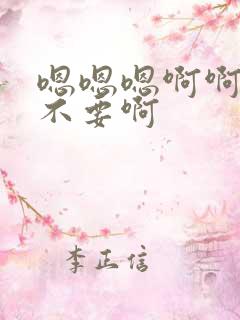 嗯嗯嗯啊啊
不要啊
李正信